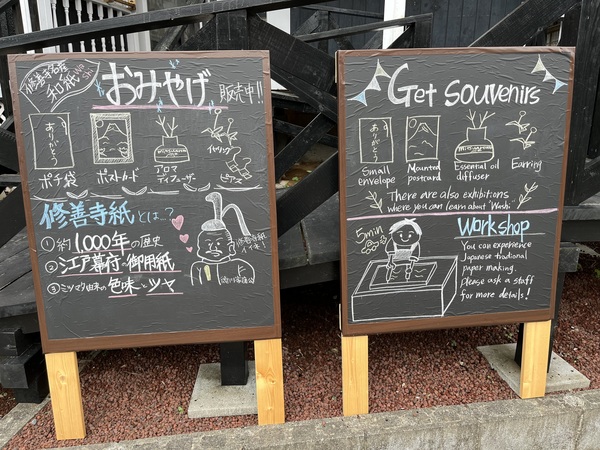 修善寺名産
和紙
おみやげ
販売中!!
ありがとう
ポチ袋
ポストカード
アロマ
ディフューザー
イヤリング
ピアス
修善寺紙とは…?
①約1,000年の歴史
②江戸幕府・御用紙
③ミツマタ由来の色味とツヤ
修善寺紙
イイネ!
徳川家康公
Get Souvenirs
ありがとう
Small
envelope
Mounted
postcard
Essential oil
diffuser
Earring
There are also exhibitions
where you can learn about "Washi"
Workshop
5min
You can experience
Japanese traditional
paper making.
Please ask a staff
for more details!